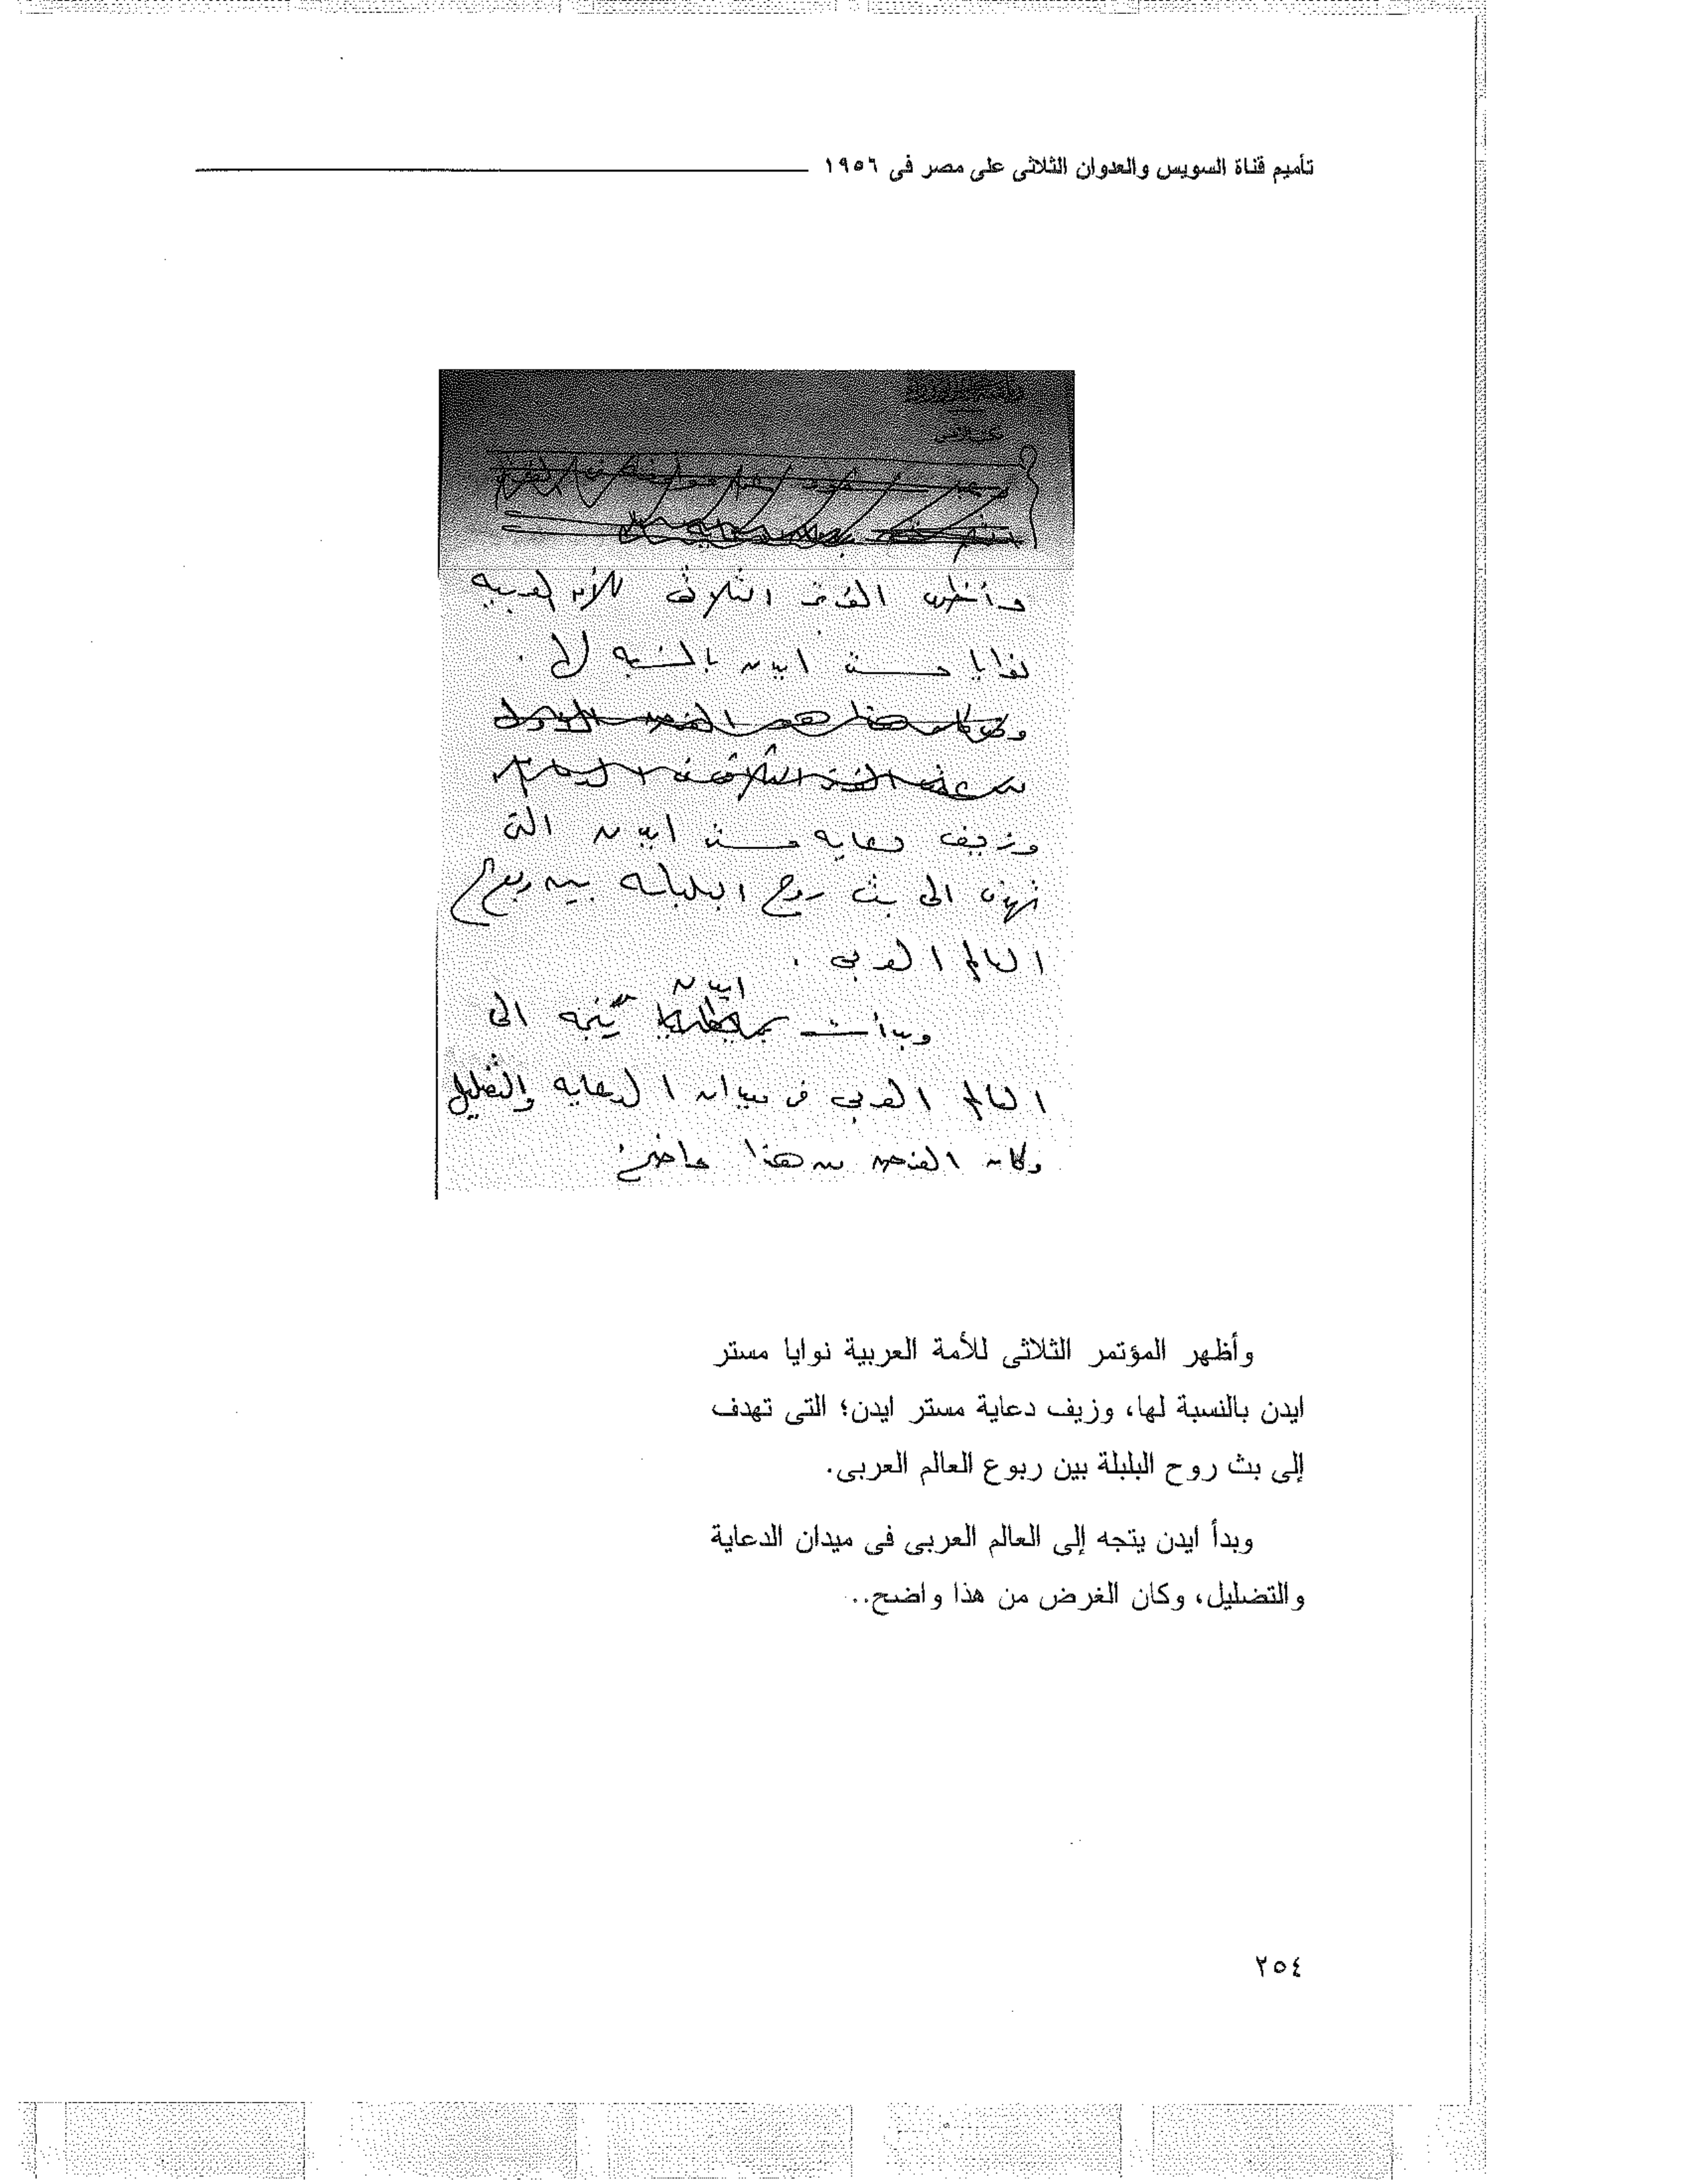 تأميم قناة السويس والعدوان الثلاثى على مصر فى ١٩٥٦
وأظهر المؤتمر الثلاثى للأمة العربية
نوايا مستر ايدن بالنسبة لها .
وزيف دعاية مستر ايدن التى
تهدف الى بث روح البلبلة بين ربوع
العالم العربى .
ايدن
وبدأت يتجه الى
العالم العربى فى ميدان الدعاية والتضليل
وكان الغرض من هذا واضح
وأظهر المؤتمر الثلاثى للأمة العربية نوايا مستر
ايدن بالنسبة لها، وزيف دعاية مستر ايدن؛ التى تهدف
إلى بث روح البلبلة بين ربوع العالم العربى.
وبدأ ايدن يتجه إلى العالم العربى فى ميدان الدعاية
والتضليل، وكان الغرض من هذا واضح..
٢٥٤